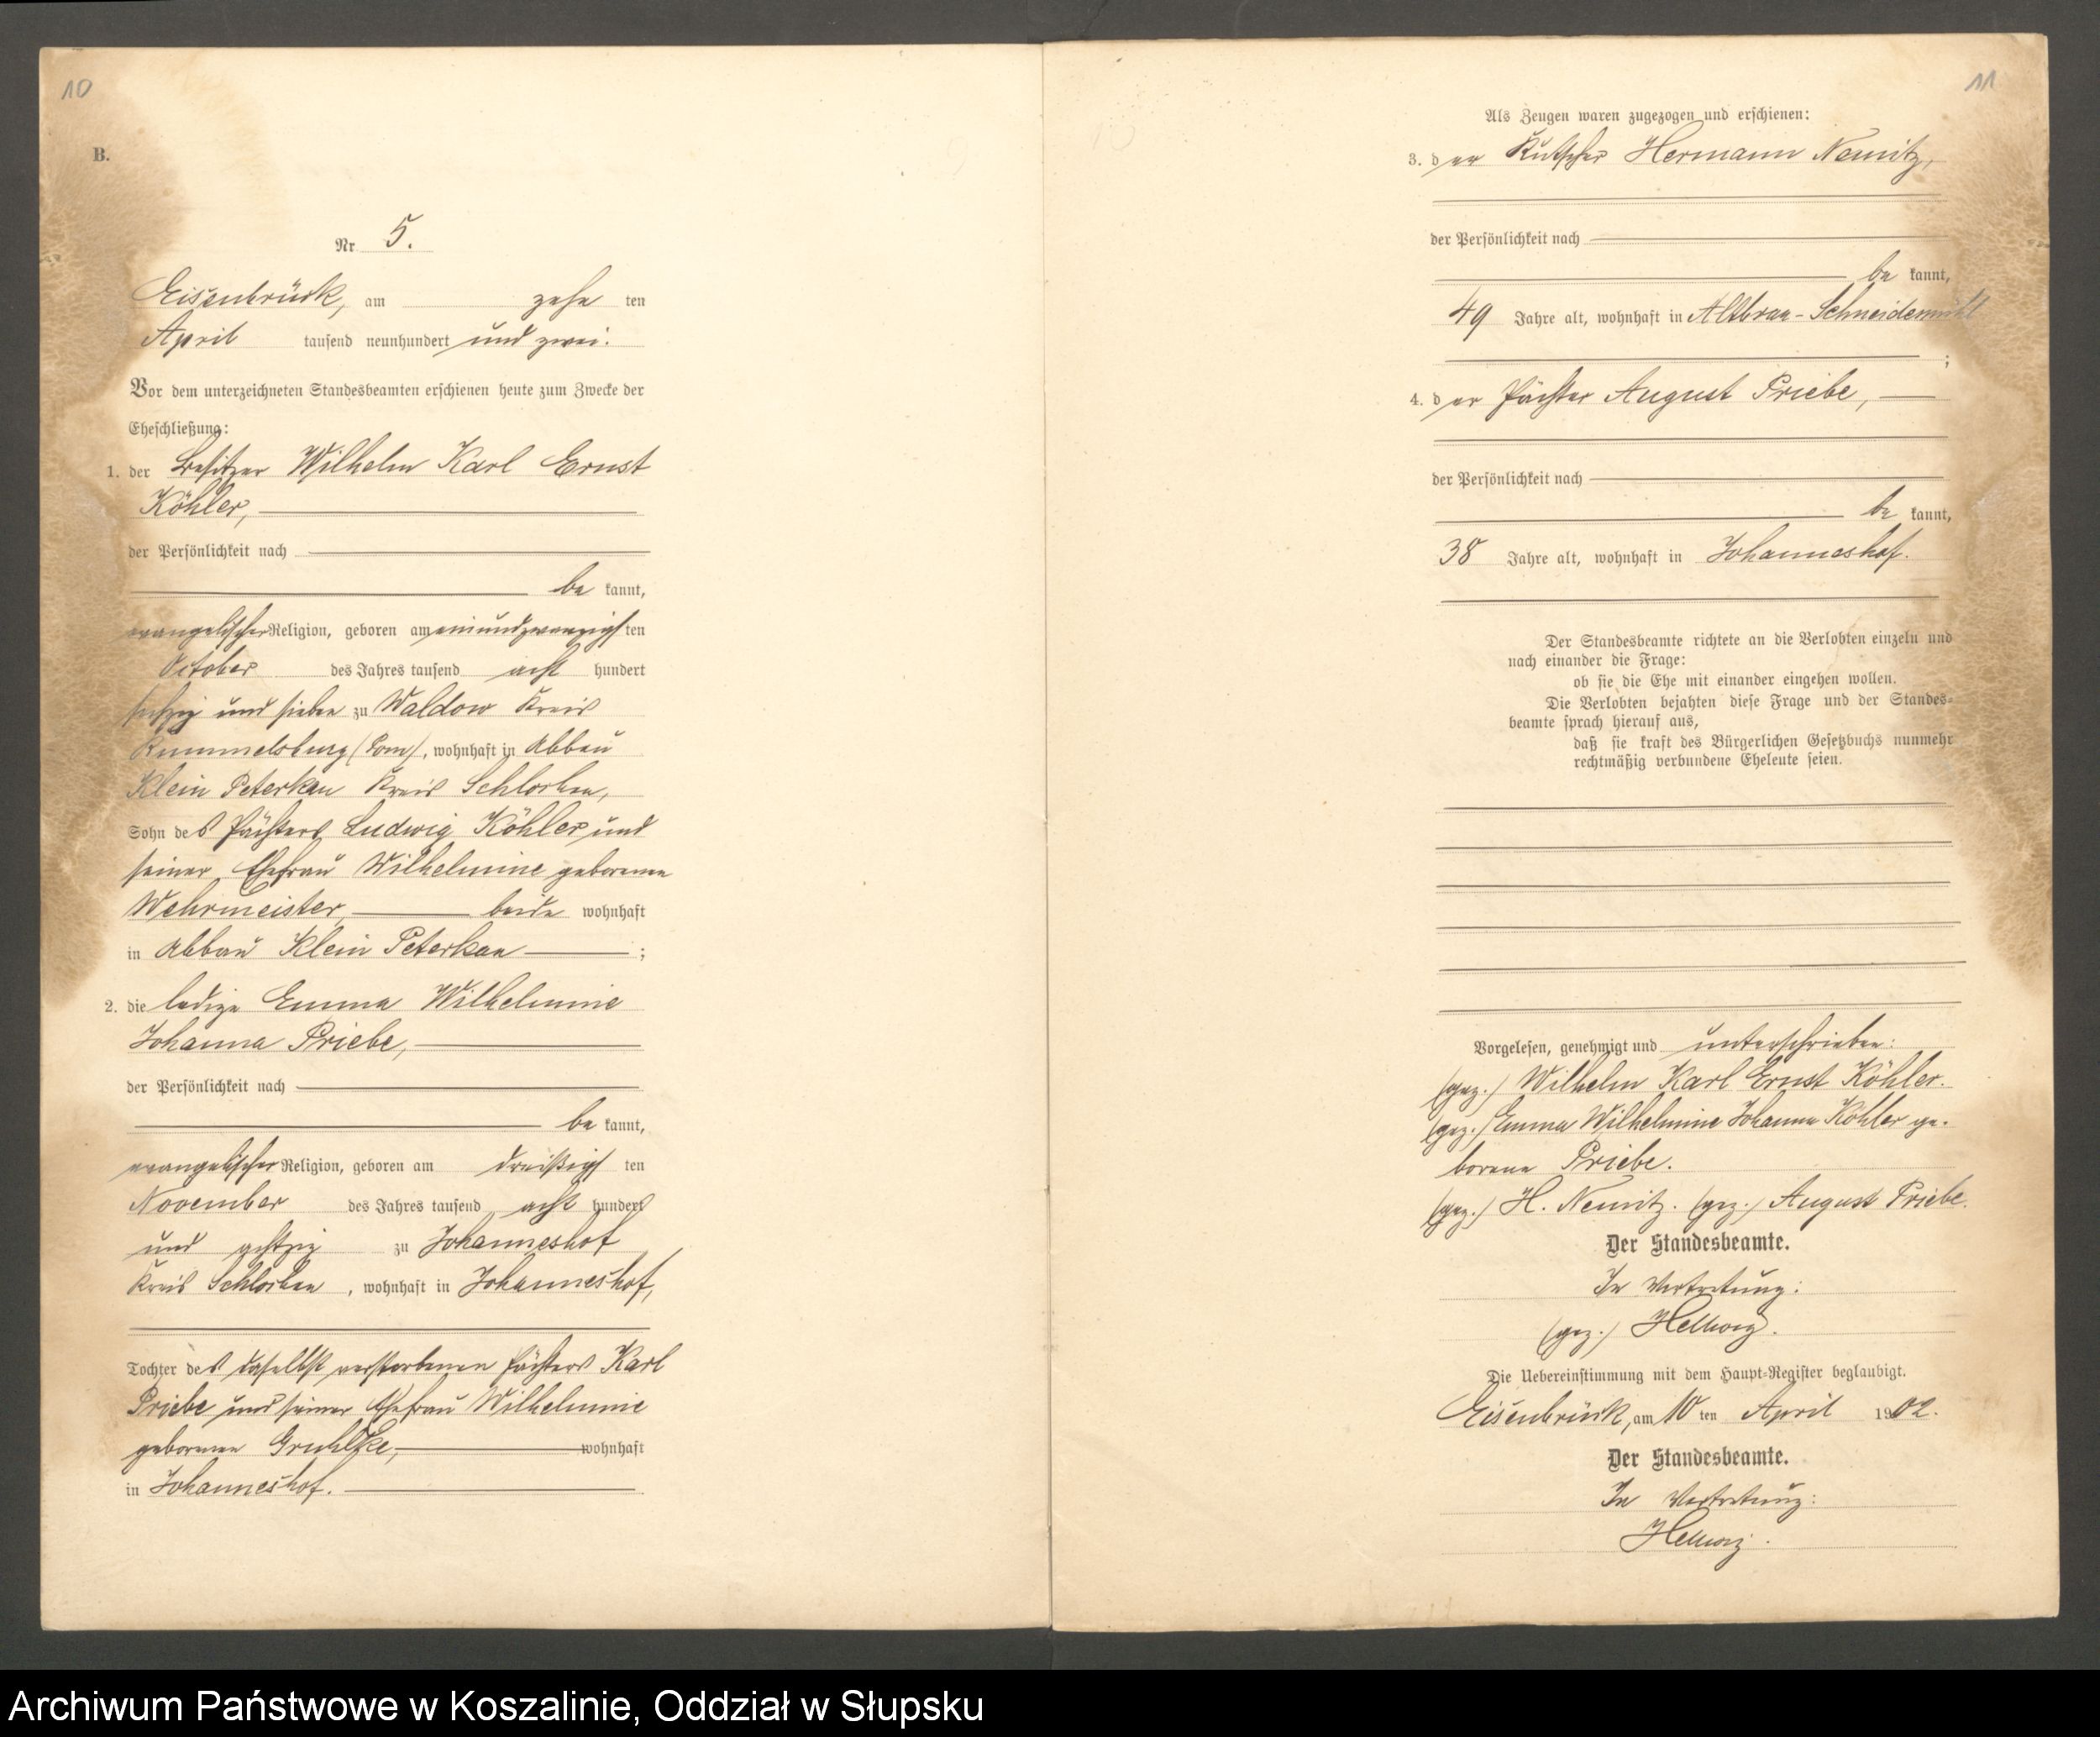 10
B.
Nr 5.
Eisenbrück, am zehn ten
April tausend neunhundert und zwei.
Vor dem unterzeichneten Standesbeamten erschienen heute zum Zwecke der
Eheschließung:
1. der Besitzer Wilhelm Karl Ernst
Köhler,
der Persönlichkeit nach
be kannt,
evangelischer Religion, geboren am einundzwanzigs ten
October des Jahres tausend acht hundert
sechzig und sieben zu Waldow Kreis
Rummelsburg (Pom), wohnhaft in Abbau
Klein Peterkau Kreis Schlochau,
Sohn des Pächters Ludwig Köhler und
seiner Ehefrau Wilhelmine geborenen
Wehrmeister, beide wohnhaft
in Abbau Klein Peterkau ;
2. die ledige Emma Wilhelmine
Johanna Priebe,
der Persönlichkeit nach
be kannt,
evangelischer Religion, geboren am dreißigs ten
November des Jahres tausend acht hundert
und achtzig zu Johanneshof
Kreis Schlochau, wohnhaft in Johanneshof,
Tochter des daselbst verstorbenen Pächters Karl
Priebe und seiner Ehefrau Wilhelmine
geborenen Gruhlke, wohnhaft
in Johanneshof.
11
Als Zeugen waren zugezogen und erschienen:
3. der Kutscher Hermann Nemitz,
der Persönlichkeit nach
be kannt,
49 Jahre alt, wohnhaft in Altbrau-Schneidemühl
;
4. der Pächter August Priebe,
der Persönlichkeit nach
be kannt,
38 Jahre alt, wohnhaft in Johanneshof.
Der Standesbeamte richtete an die Verlobten einzeln und
nach einander die Frage:
ob sie die Ehe mit einander eingehen wollen.
Die Verlobten bejahten diese Frage und der Standes-
beamte sprach hierauf aus,
daß sie kraft des Bürgerlichen Gesetzbuchs nunmehr
rechtmäßig verbundene Eheleute seien.
Vorgelesen, genehmigt und unterschrieben:
(gez.) Wilhelm Karl Ernst Köhler.
(gez.) Emma Wilhelmine Johanna Köhler ge-
borene Priebe.
(gez.) H. Nemitz. (gez.) August Priebe.
Der Standesbeamte.
In Vertretung:
(gez.) Hellwig.
Die Uebereinstimmung mit dem Haupt-Register beglaubigt.
Eisenbrück, am 10 ten April 1902.
Der Standesbeamte.
In Vertretung:
Hellwig.
Archiwum Państwowe w Koszalinie, Oddział w Słupsku